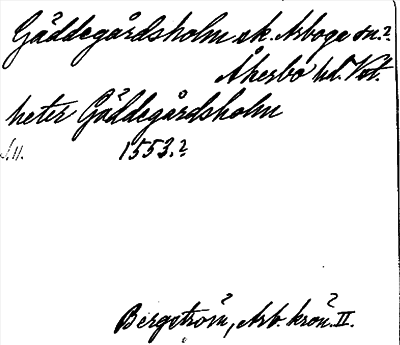 Gäddegårdsholm sk. Arboga sn.?
Åkerbo hd. Vstm.
heter Gäldegårdsholm
1553.?
Bergström, Arb. krön. II.